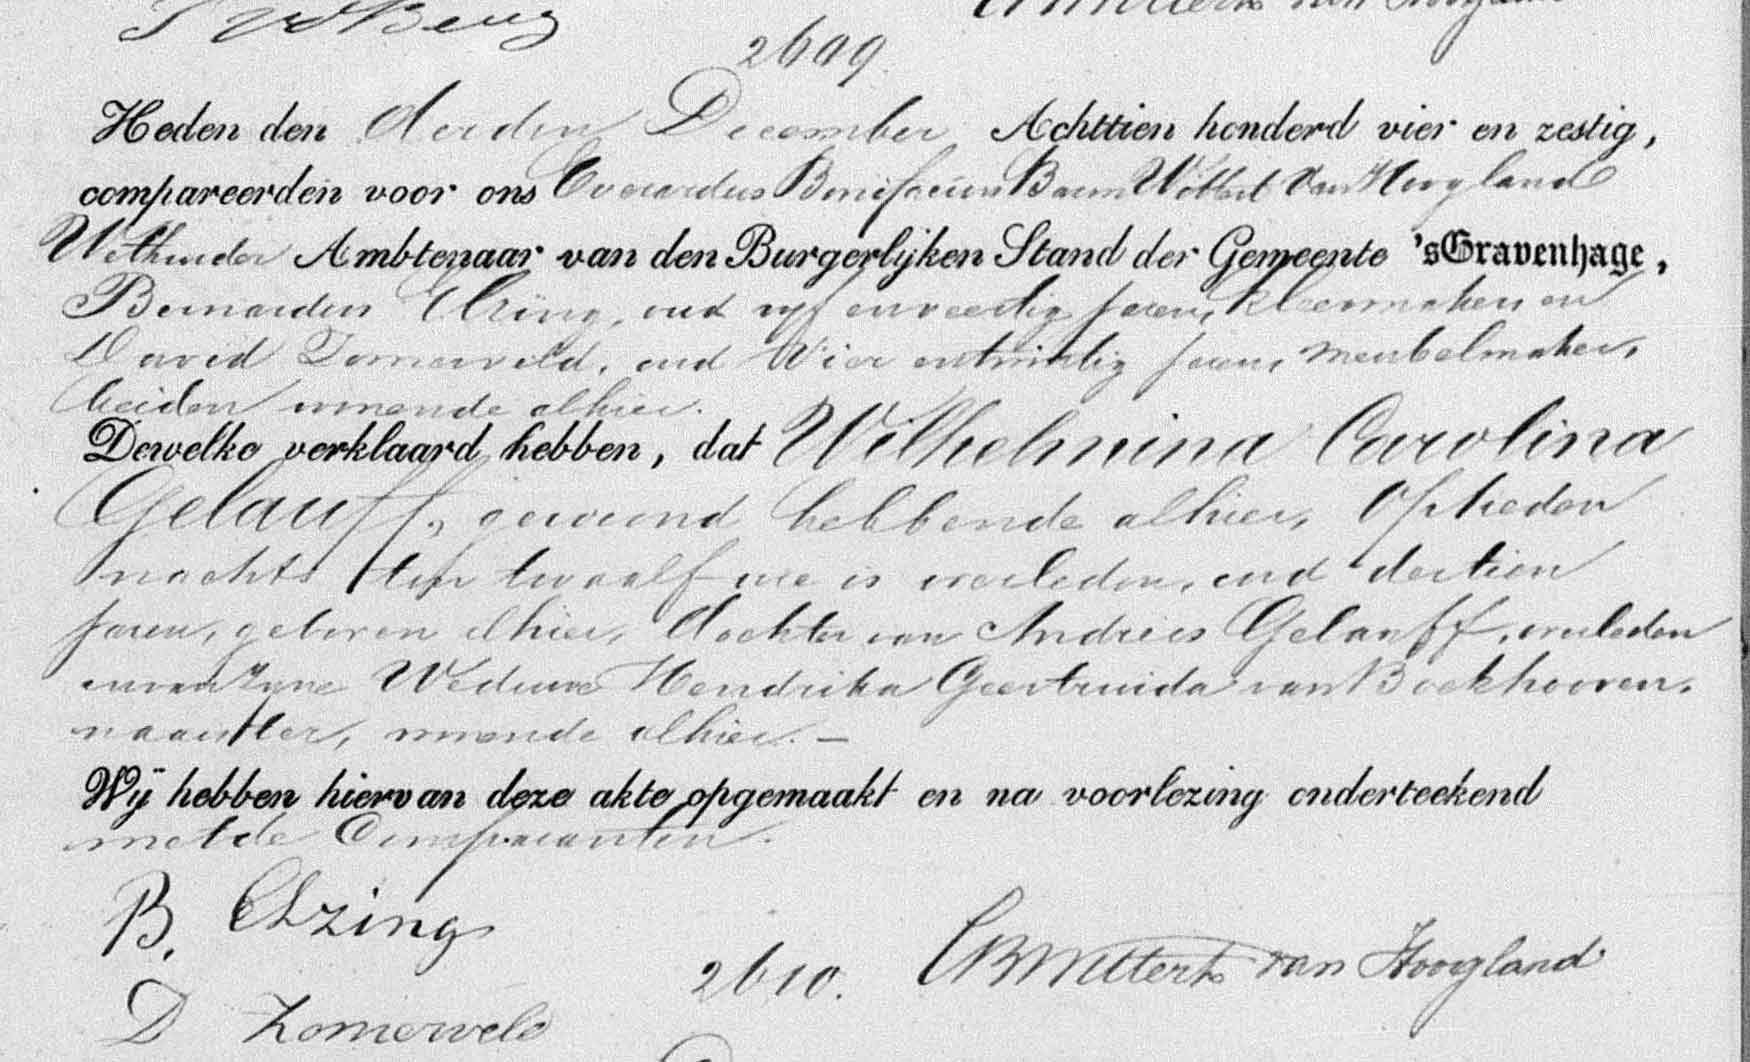 van Hoogland
2609.
Heden den derden December Achttien honderd vier en zestig,
compareerden voor ons Everardus Bonifacius Baron Wittert van Hoogland
Wethouder Ambtenaar van den Burgerlijken Stand der Gemeente 's Gravenhage,
Bernardus Elzing, oud vyf en veertig jaren, kleermaker en
David Zomerveld, oud Vier entwintig jaren, meubelmaker,
beiden wonende alhier.
Dewelke verklaard hebben, dat Wilhelmina Carolina
Gelauff, gewoond hebbende alhier, Op heden
nachts ten twaalf ure is overleden, oud dertien
jaren, geboren alhier, dochter van Andries Gelauff, overleden
en van zyne Weduwe Hendrika Geertruida van Boekhooven,
naaister, wonende alhier. —
Wij hebben hiervan deze akte opgemaakt en na voorlezing onderteekend
met de Comparanten.
B. Elzing
2610. EBWittert van Hoogland
D Zomerveld